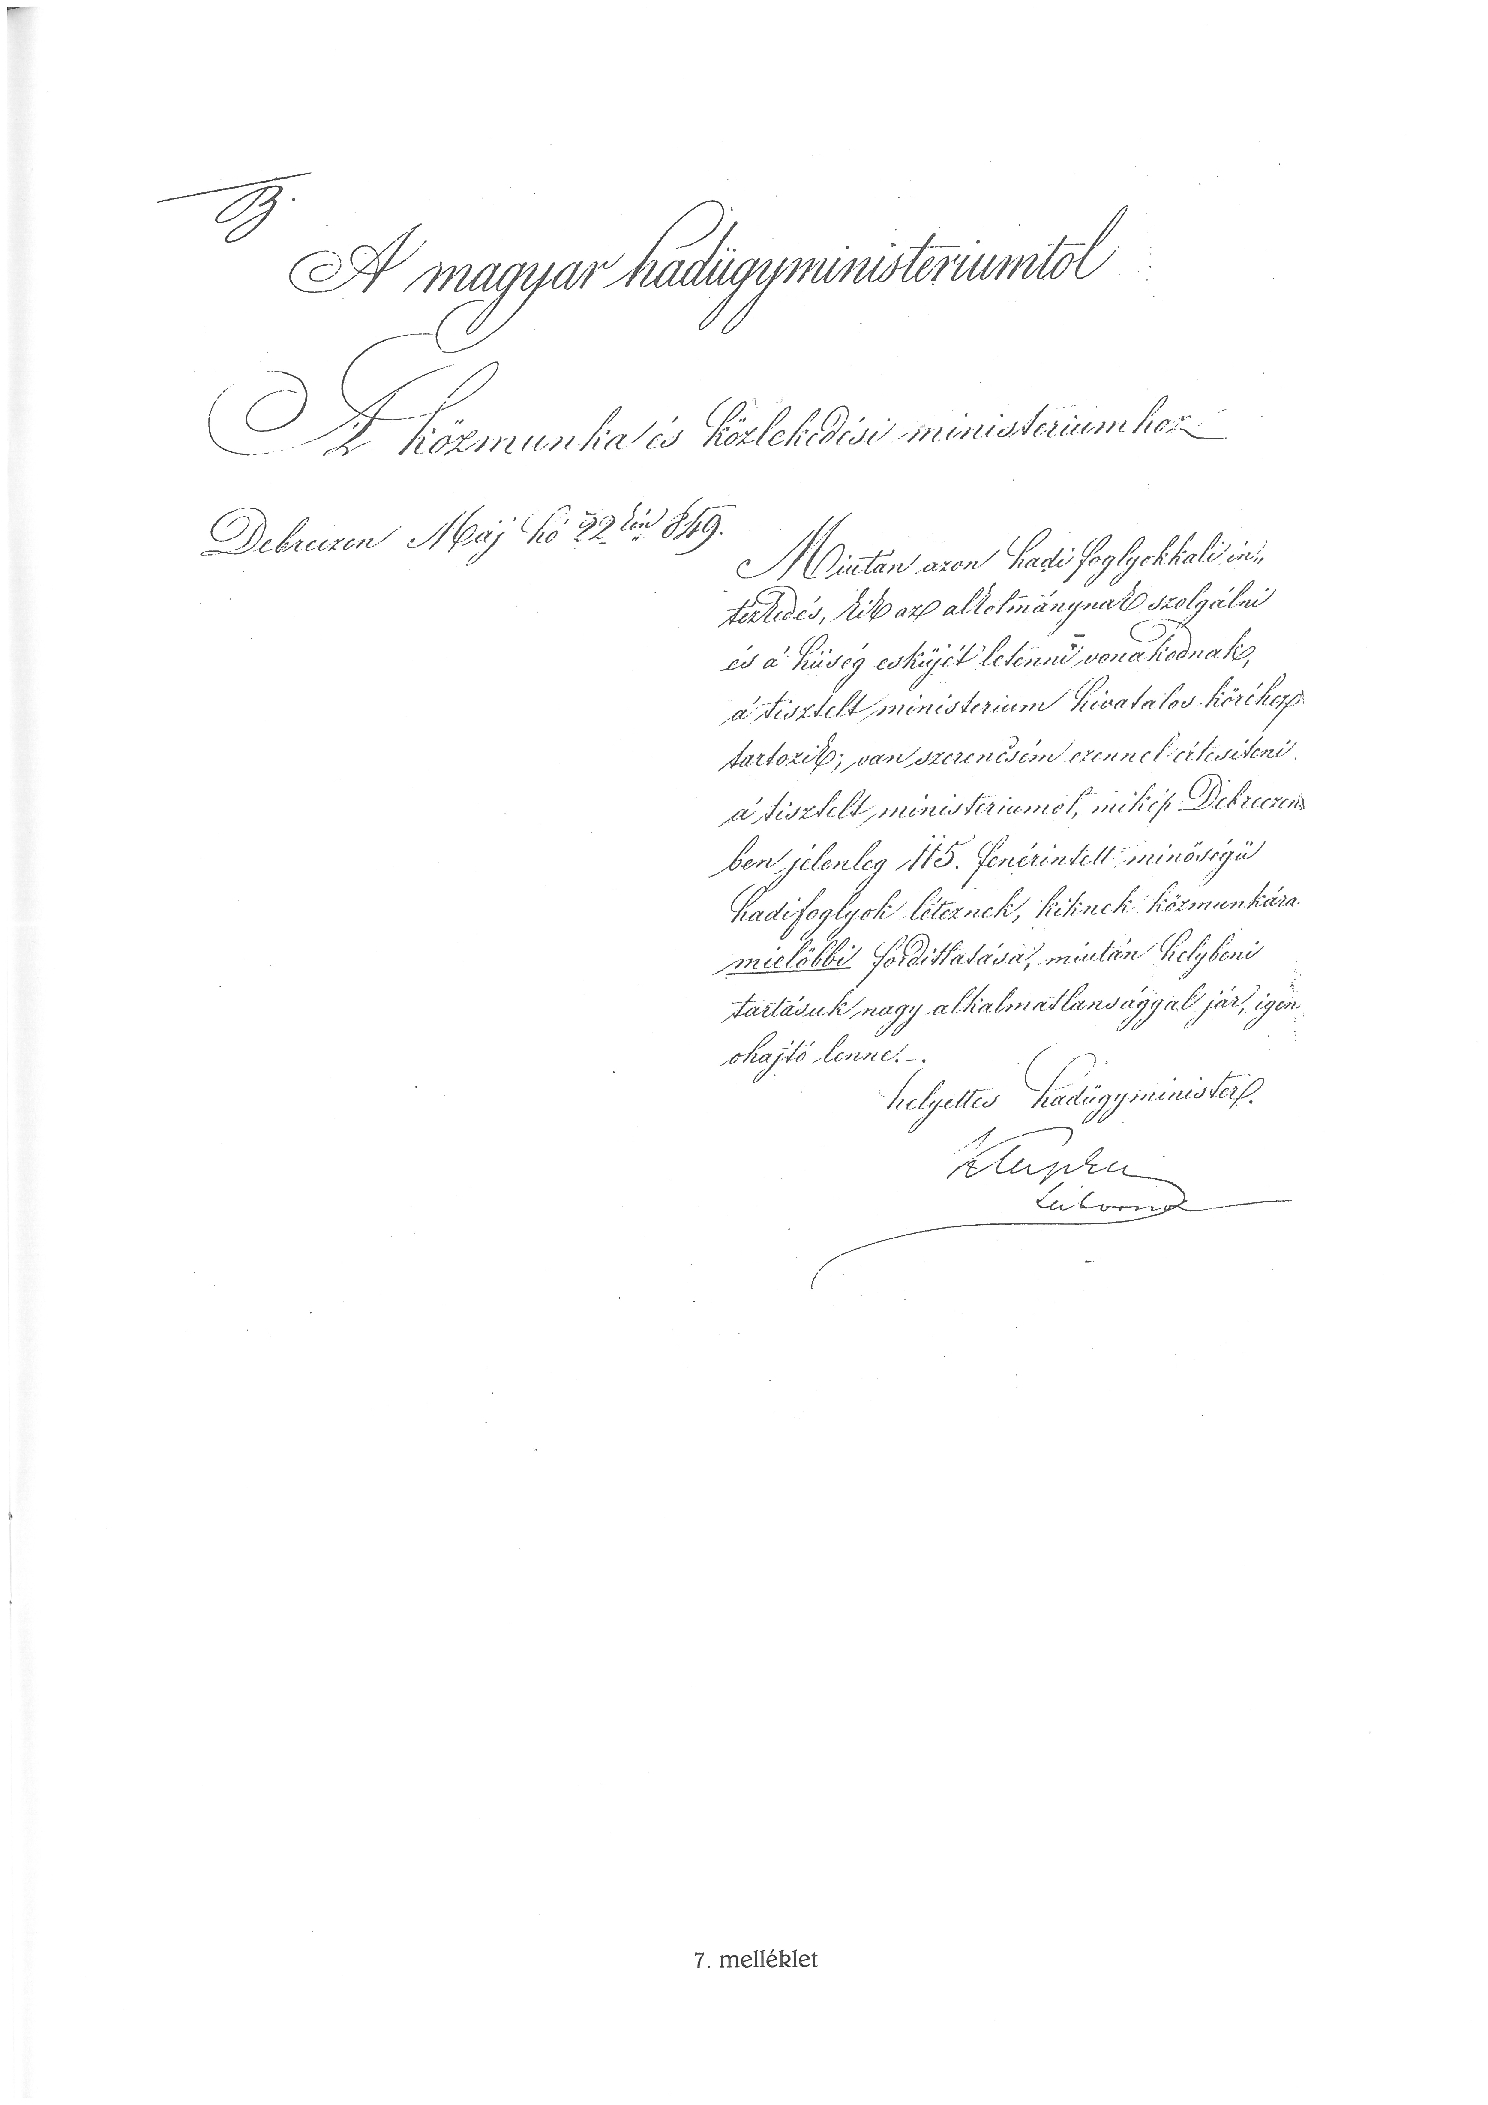 B.
A magyar hadügyministeriumtol
A közmunka és közlekedési ministeriumhoz
Debreczen Máj hó 22 kén 849.
Miután azon hadi foglyokkali in„
tézkedés, kik az alkotmánynak szolgálni
és a' hüség esküjét letenni vonakodnak,
a' tisztelt ministerium hivatalos köréhez
tartozik; van szerencsém ezennel értesiteni
a' tisztelt ministeriumot, mikép Debreczen„
ben jelenleg 115. fenérintett minőségü
hadifoglyok léteznek, kiknek közmunkára
mielőbbi fordittatása, miután helybeni
tartásuk nagy alkalmatlansággal jár, igen
ohajtó lenne.–.
helyettes hadügyminister.
Klapka
tábornok
7. melléklet